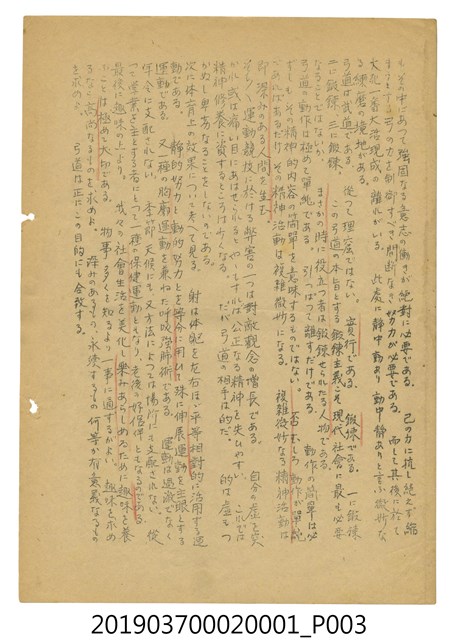 も、その中にあつて强固なる意志の働きが絶対に必要である。 己の力に抗し絶えず縮
まうとする弓の力を制御すべき間断なき努力が必要である。 而して其後に於て
大死一番大活現成の離れがいる。 此處に静中動あり動中静ありと言ふ微妙な
る練磨の境地がある。
弓道は武道である。 從つて理屈ではない。 實行である。 鍛錬である。 一に鍛錬
二に鍛錬三に鍛錬。 この弓道の本旨とする鍛錬主義こそ現代社會に最も必要
なることではないか。 まさかの時に役立つ者は鍛錬せられたる人物である。
弓道の動作は極めて單純である。 引つぱつて離すだけである。 動作の簡單は必
ずしもその精神的内容の簡單を意味するものではない。 否むしろ動作が單純
であればあるだけその精神活動は複雜微妙になる。 複雜微妙なる精神活動は
即深みのある人間を生む。
そも／＼運動競技に於ける弊害の一つは對敵觀念の增長である。 自分の虚を突
かれ或は痛い目にあはせられるとやゝもすれば公正なる精神を失ひやすい。 これでは
精神修養に資するところは少くなる。 だが弓道の相手は的だ。 的は虚をつ
かぬし卑劣なることをしないのである。
次に体育上の效果について考へて見る。 射は体躯を左右ほゞ平等相對的に活用する運
動である。 靜的努力と動的努力とを等分に用ひて殊に伸展運動を主眼とする
運動である。 又一種の胸廓運動を兼ねた呼吸 術である。 運動は過激でなく
年令に支配されない。 季節天候にも又方法によつては場所にも支配されない。 從
つて 業を主とする者にとつて一種の保健運動ともなり老後の好伴侶ともなるのである。
最後に趣味の上より。 我々の社會生活を美化し樂みあらしめるために趣味を養
ふことは極めて大切である。 物事多くを知るより一事に通ずるがよい。 趣味を求め
るなら高尚なるものを求めよ。 深みのあるもの、永續するもの何等か有意義なるもの
を求めよ。 弓道は正にこの目的にも合致する。
201903700020001_P003